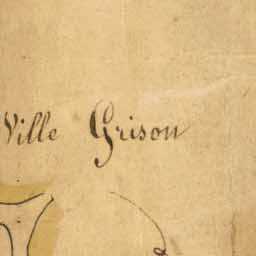 Ville Grison